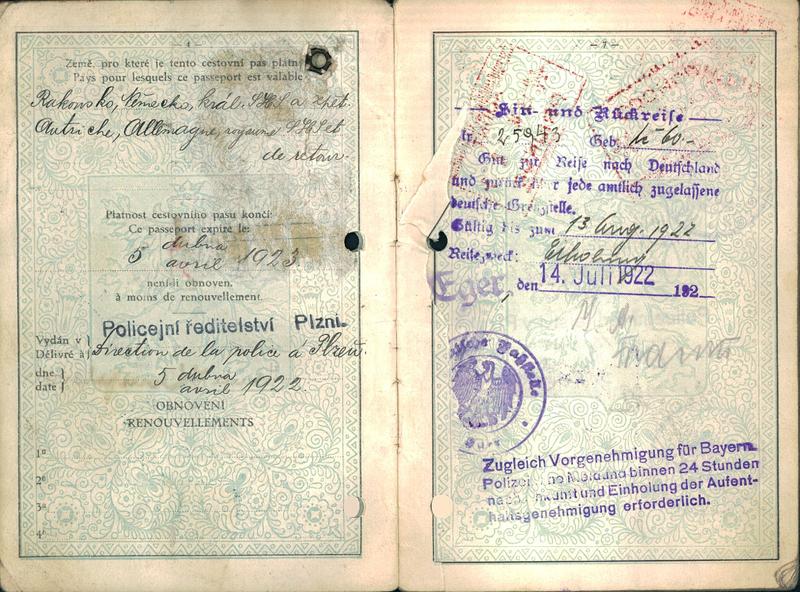 - 4 -
Země, pro které je tento cestovní pas platný
Pays pour lesquels ce passeport est valable
Rakousko, Německo, král. SHS a zpět.
Autriche, Allemagne, royaume SHS et
de retour.
Platnost cestovního pasu končí:
Ce passeport expire le:
5 dubna
avril 1923
není-li obnoven.
à moins de renouvellement.
Policejní ředitelství Plzni.
Vydán v
Délivré à Direction de la police à Plzeň.
dne
date
5 dubna
avril 1922.
OBNOVENÍ
RENOUVELLEMENTS
1º
2º
3º
4º
- 7 -
Hin- und Rückreise
Nr. 25943 Geb.
Gut zur Reise nach Deutschland
und zurück über jede amtlich zugelassene
deutsche Grenzstelle.
Gültig bis zum 13 Aug. 1922
Reisezweck: Erholung
Eger, den 14. Juli 1922 192
Zugleich Vorgenehmigung für Bayern
Meldung binnen 24 Stunden
nach Ankunft und Einholung der Aufent-
haltsgenehmigung erforderlich.